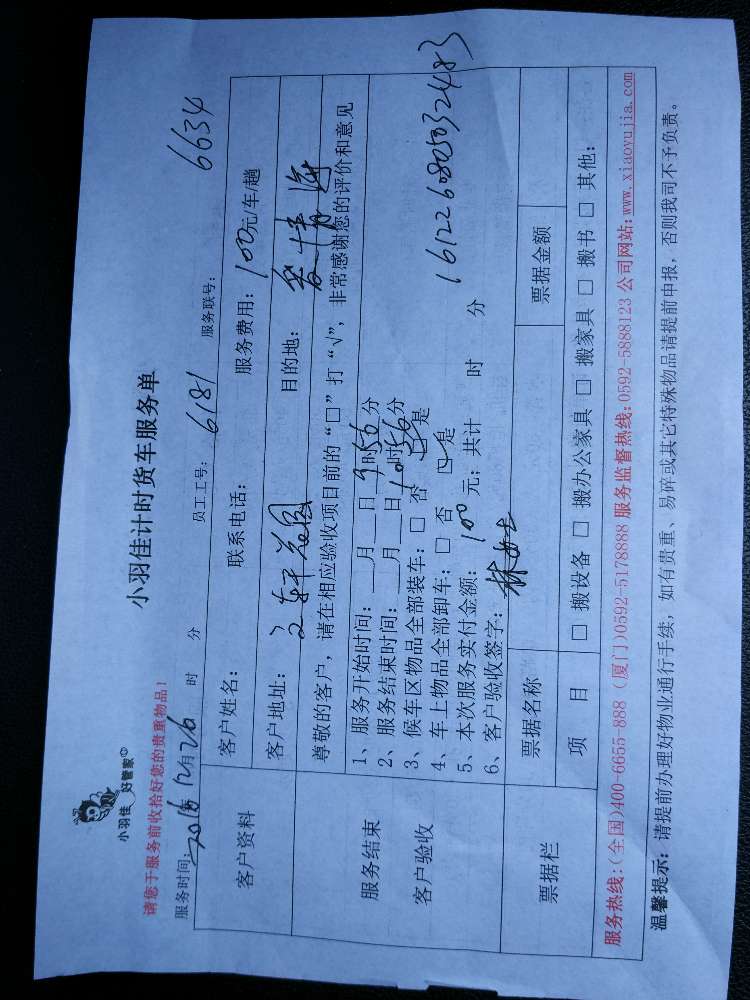 小羽佳 好管家
小羽佳计时货车服务单
请您于服务前收拾好您的贵重物品！
服务时间：2016 12月26 时 分 员工工号：6181 服务联号：6634
客户资料
客户姓名： 联系电话： 服务费用：100元/车/趟
客户地址：文轩花园 目的地：
服务结束
客户验收
尊敬的客户，请在相应验收项目前的“□”打“√”，非常感谢您的评价和意见
1、服务开始时间：___月___日9时56分
2、服务结束时间：___月___日10时56分
3、候车区物品全部装车：□ 否 ☑ 是
4、车上物品全部卸车：□ 否 ☑ 是
5、本次服务实付金额：100 元；共计 时 分
6、客户验收签字：林女士
161226080503 2483
票据栏
票据名称 票据金额
项 目 □ 搬设备 □ 搬办公家具 □ 搬家具 □ 搬书 □ 其他:
服务热线:(全国)400-6655-888 (厦门)0592-5178888 服务监督热线:0592-5888123 公司网站:www.xiaoyujia.com
温馨提示：请提前办理好物业通行手续，如有贵重、易碎或其它特殊物品请提前申报，否则我司不予负责。